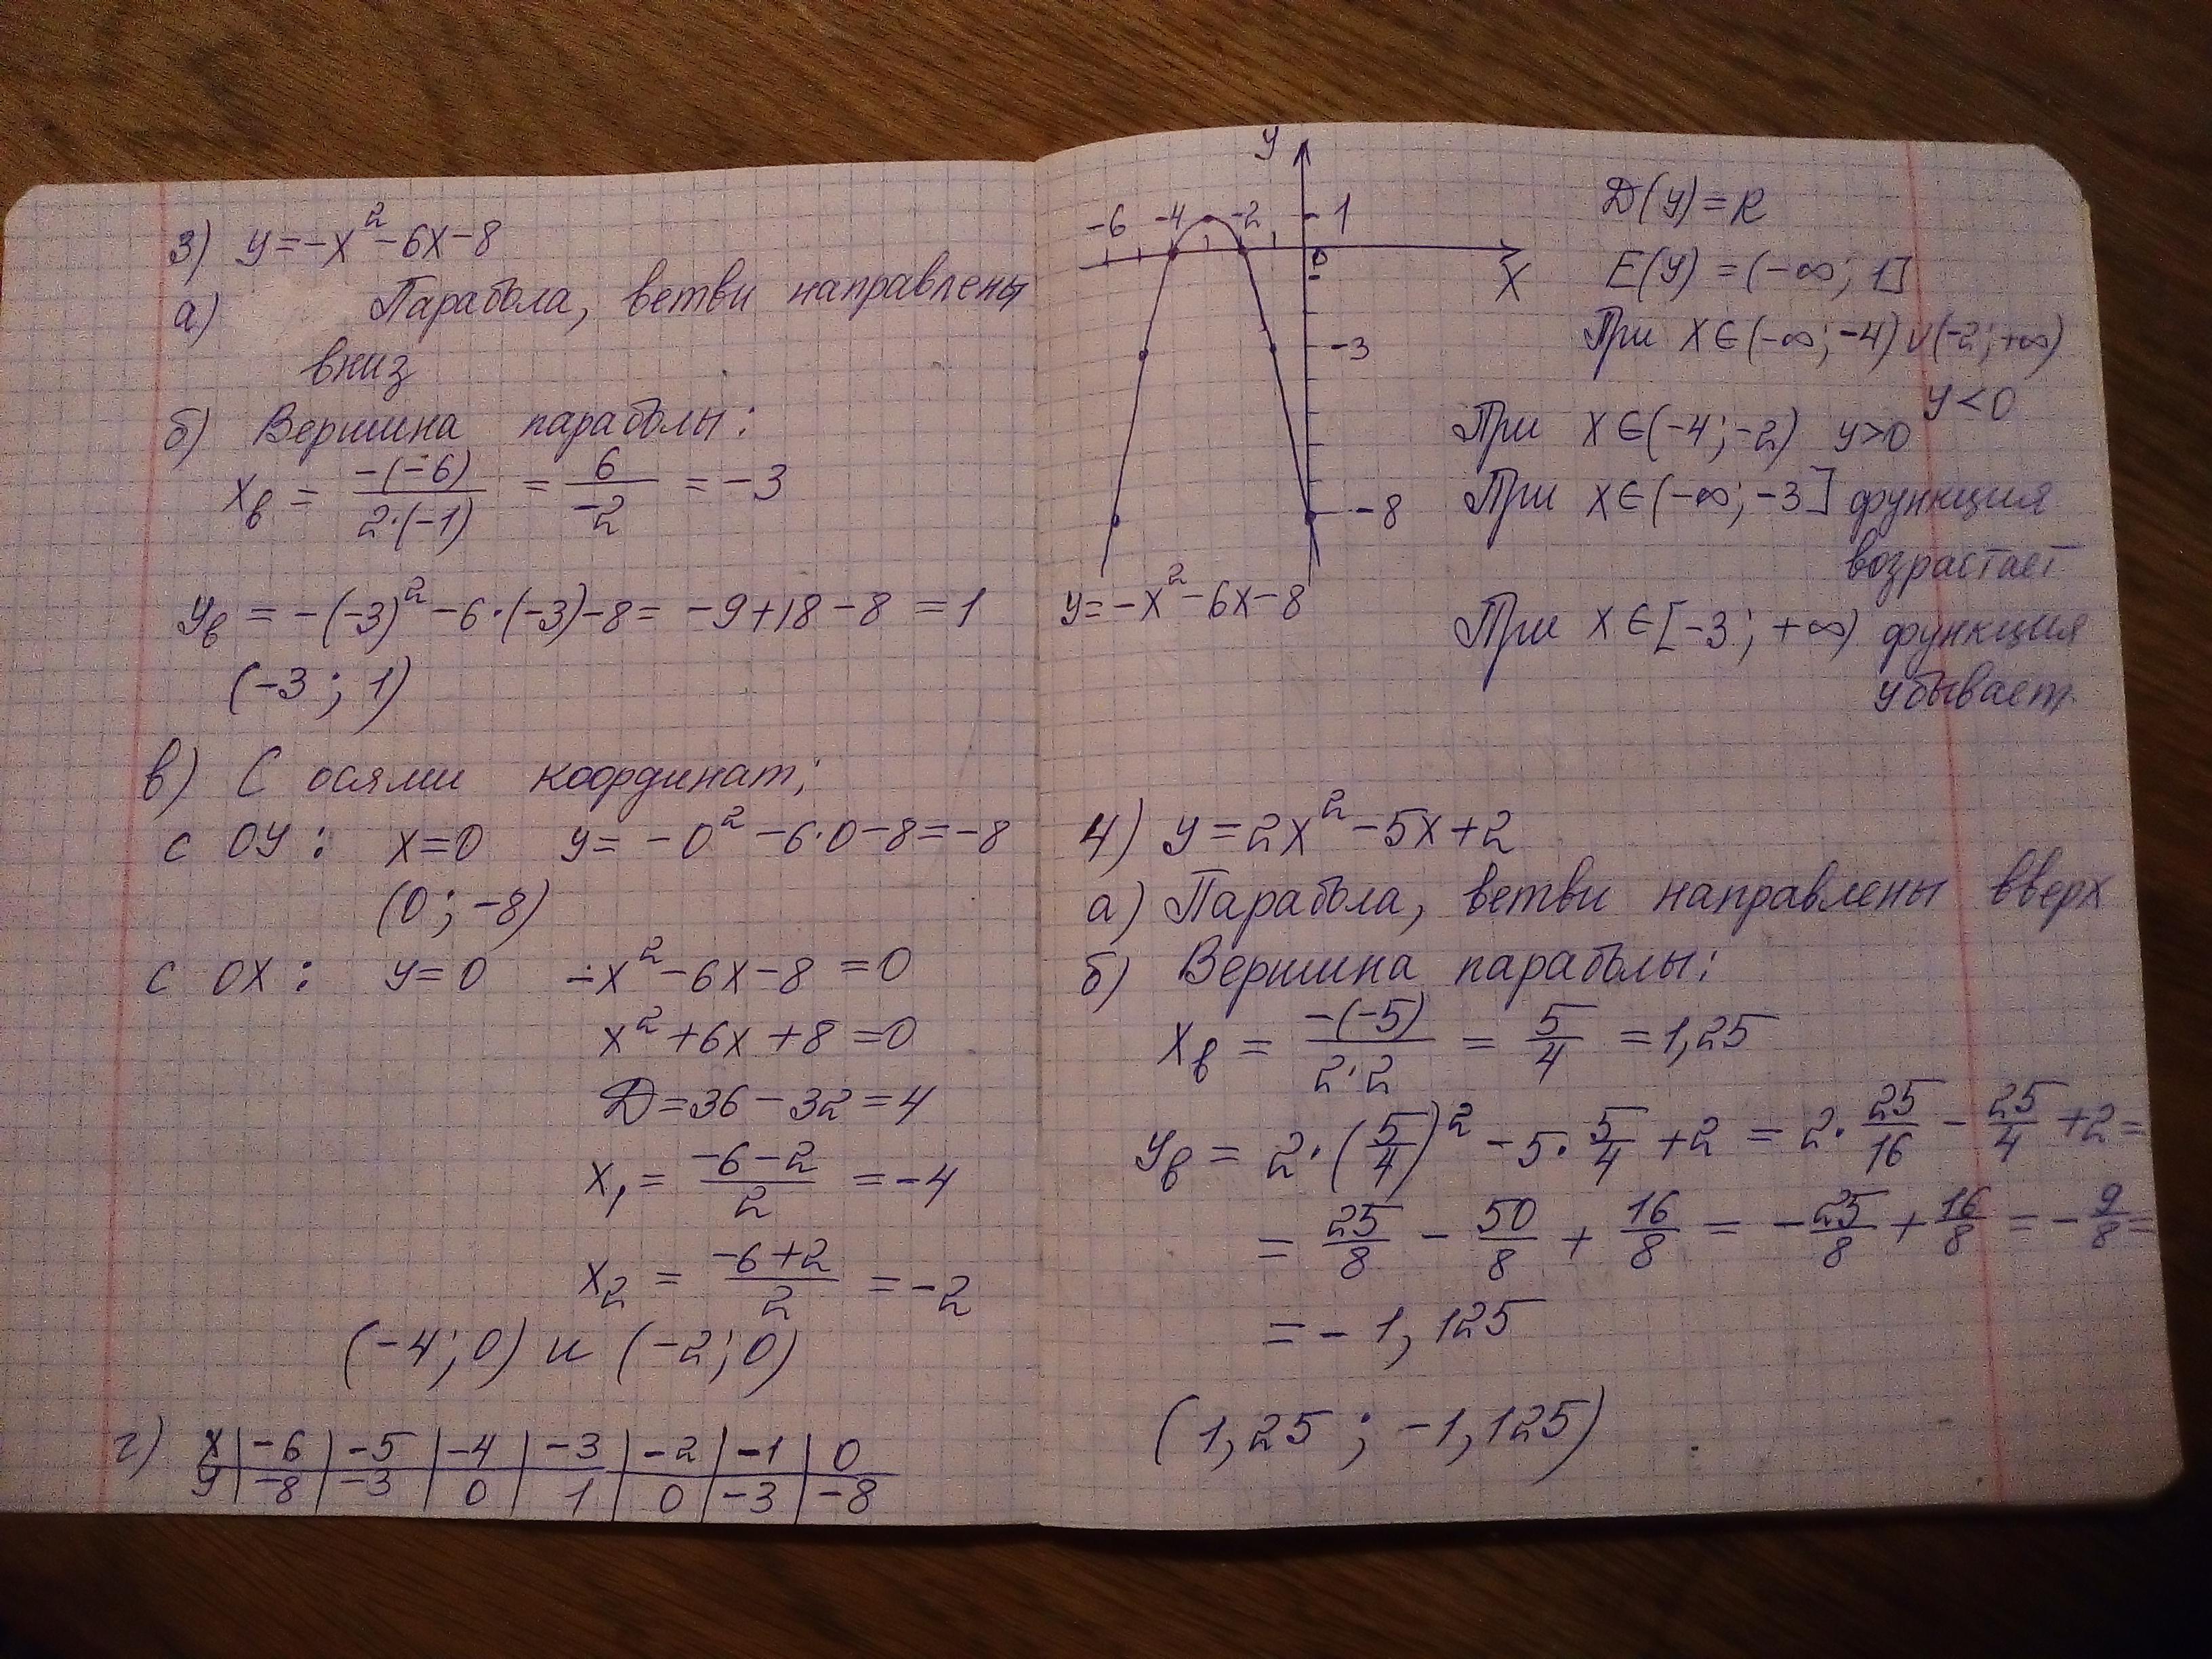 3) y=-x²-6x-8
а) Парабола, ветви направлены
вниз
б) Вершина параболы:
xв = -(-6)/2·(-1) = 6/-2 = -3
yв = -(-3)²-6·(-3)-8= -9+18-8 =1
(-3; 1)
в) С осями координат;
с OY: x=0 y= -0²-6·0-8=-8
(0; -8)
с OX: y=0 -x²-6x-8=0
x²+6x+8=0
D=36-32=4
x₁= -6-2/2 =-4
x₂ = -6+2/2 =-2
(-4; 0) и (-2; 0)
г) x | -6 | -5 | -4 | -3 | -2 | -1 | 0
y | -8 | -3 | 0 | 1 | 0 | -3 | -8
y
-6 -4 -2 1
0
X
-3
-8
y=-x²-6x-8
D(y)=R
E(y)=(-∞; 1]
При x∈(-∞; -4)∪(-2; +∞)
y<0
При x∈(-4; -2) y>0
При x∈(-∞; -3] функция
возрастает
При x∈[-3; +∞) функция
убывает.
4) y=2x²-5x+2
а) Парабола, ветви направлены вверх
б) Вершина параболы:
xв = -(-5)/2·2 = 5/4 =1,25
yв = 2·(5/4)²-5·5/4+2 = 2·25/16 - 25/4 +2=
= 25/8 - 50/8 + 16/8 = -25/8 + 16/8 = -9/8=
=-1,125
(1,25; -1,125)